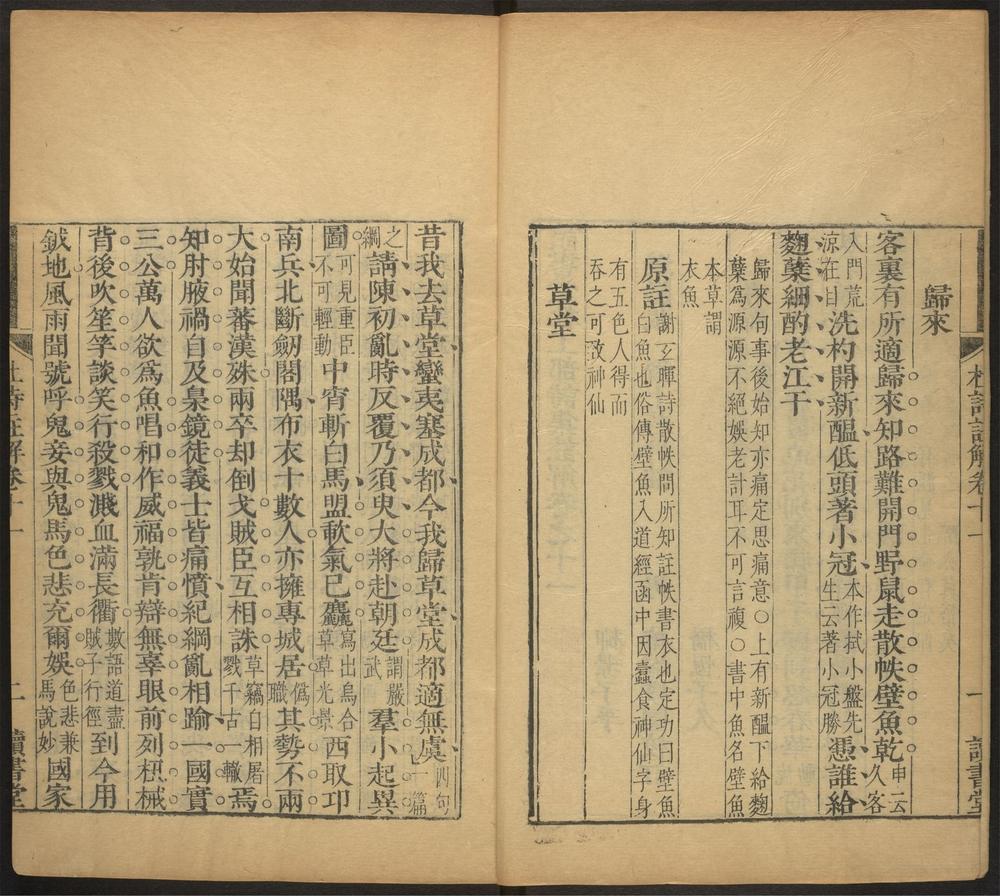 歸來
客裏有所適歸來知路難開門野鼠走散帙壁魚乾申云久客
入門荒涼在目洗杓開新醞低頭著小冠本作拭小盤先生云著小冠勝憑誰給
麴糵細酌老江干
歸來句事後始知亦痛定思痛意○上有新醞下給麴
糵爲源源不絕娛老計耳不可言複○書中魚名壁魚
本草謂衣魚
原註謝玄暉詩散帙問所知註帙書衣也定功曰壁魚白魚也俗傳壁魚入道經函中因蠹食神仙字身
有五色人得而吞之可致神仙
草堂
杜詩註解卷十一
一
讀書堂
昔我去草堂蠻夷塞成都今我歸草堂成都適無虞四句一篇
之綱請陳初亂時反覆乃須臾大將赴朝廷謂嚴武羣小起異
圖可見重臣不可輕動中宵斬白馬盟歃氣已麤寫出烏合草草光景西取邛
南兵北斷劒閣隅布衣十數人亦擁專城居僞職其勢不兩
大始聞蕃漢殊兩卒却倒戈賊臣互相誅草竊自相屠戮千古一轍焉
知肘腋禍自及梟鏡徒義士皆痛憤紀綱亂相踰一國實
三公萬人欲爲魚唱和作威福孰肯辯無辜眼前列杻械
背後吹笙竽談笑行殺戮濺血滿長衢數語道盡賊子行徑到今用
鉞地風雨聞號呼鬼妾與鬼馬色悲充爾娛色悲兼馬說妙國家
杜詩註解卷十一
二
讀書堂